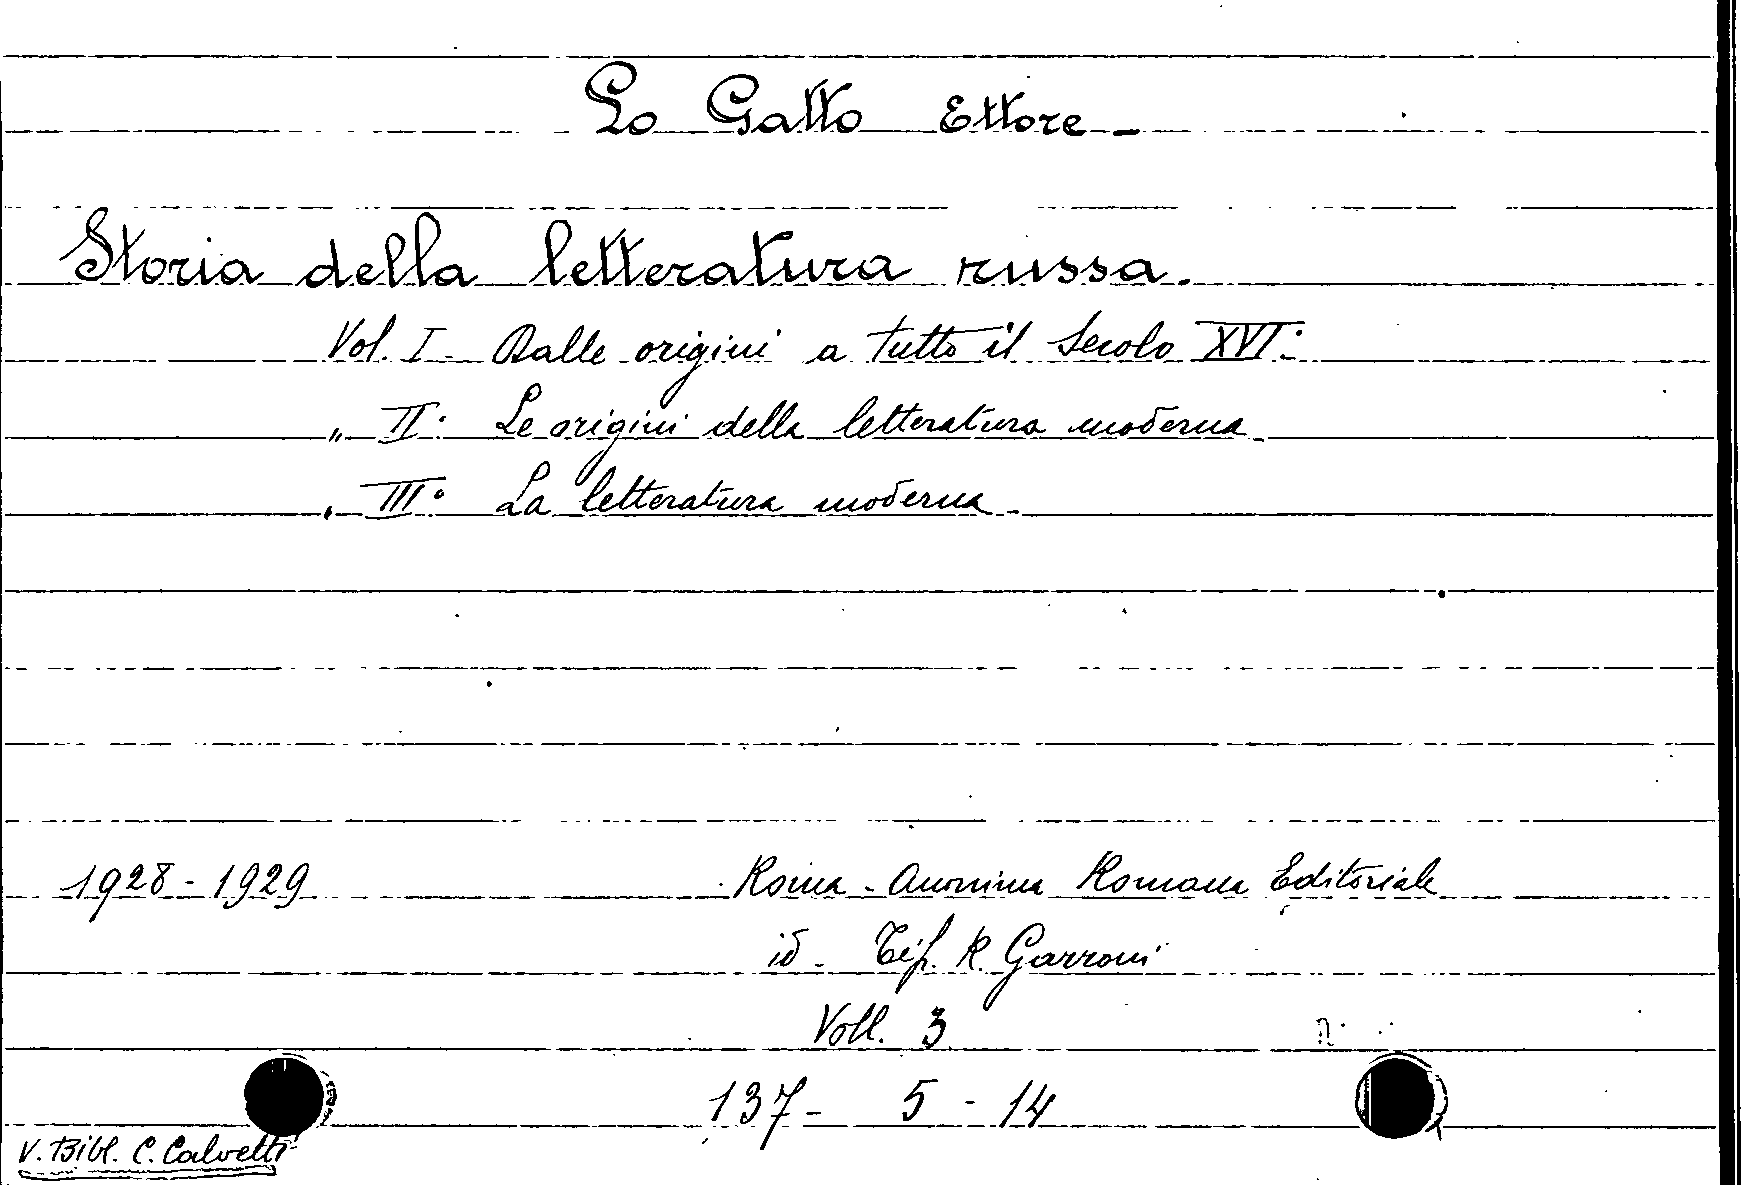 Lo Gatto Ettore -
Storia della letteratura russa.
Vol. I Dalle origini a tutto il Secolo XVI°
" II° Le origini della letteratura moderna
" III° La letteratura moderna
1928 - 1929 Roma - Anonima Romana Editoriale
id - Tip. R. Garroni
Voll. 3
137 - 5 - 14
V. Bibl. C. Calvetti